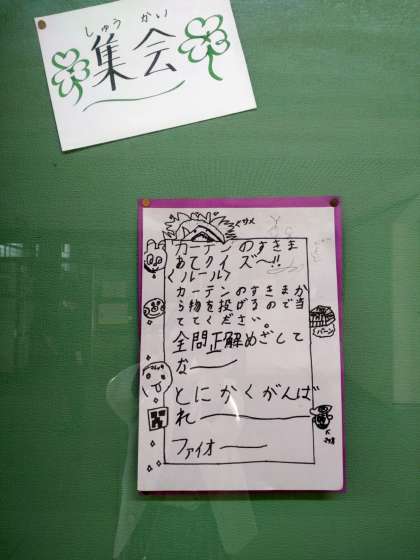 しゅう かい
集会
カーテンのすきま
あてクイズ〜!!
<ルール>
カーテンのすきまか
ら物を投げるので当
ててください。
全問正解めざして
なー
とにかくがんば
れー
ファイオー